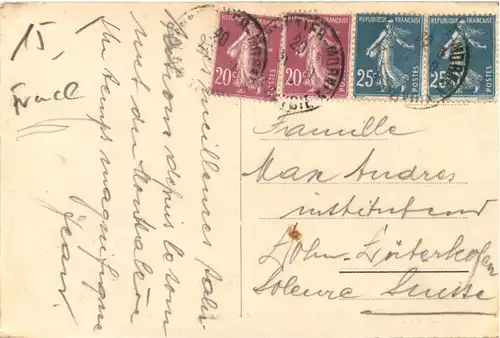 15
REPUBLIQUE FRANÇAISE
20c POSTES
REPUBLIQUE FRANÇAISE
20c POSTES
REPUBLIQUE FRANÇAISE
25c POSTES
REPUBLIQUE FRANÇAISE
25c POSTES
meilleures
depuis le som
met du
temps magnifique
Jean
Famille
Max Andres
instituteur
Lohn-Lüterkofen
Soleure Suisse